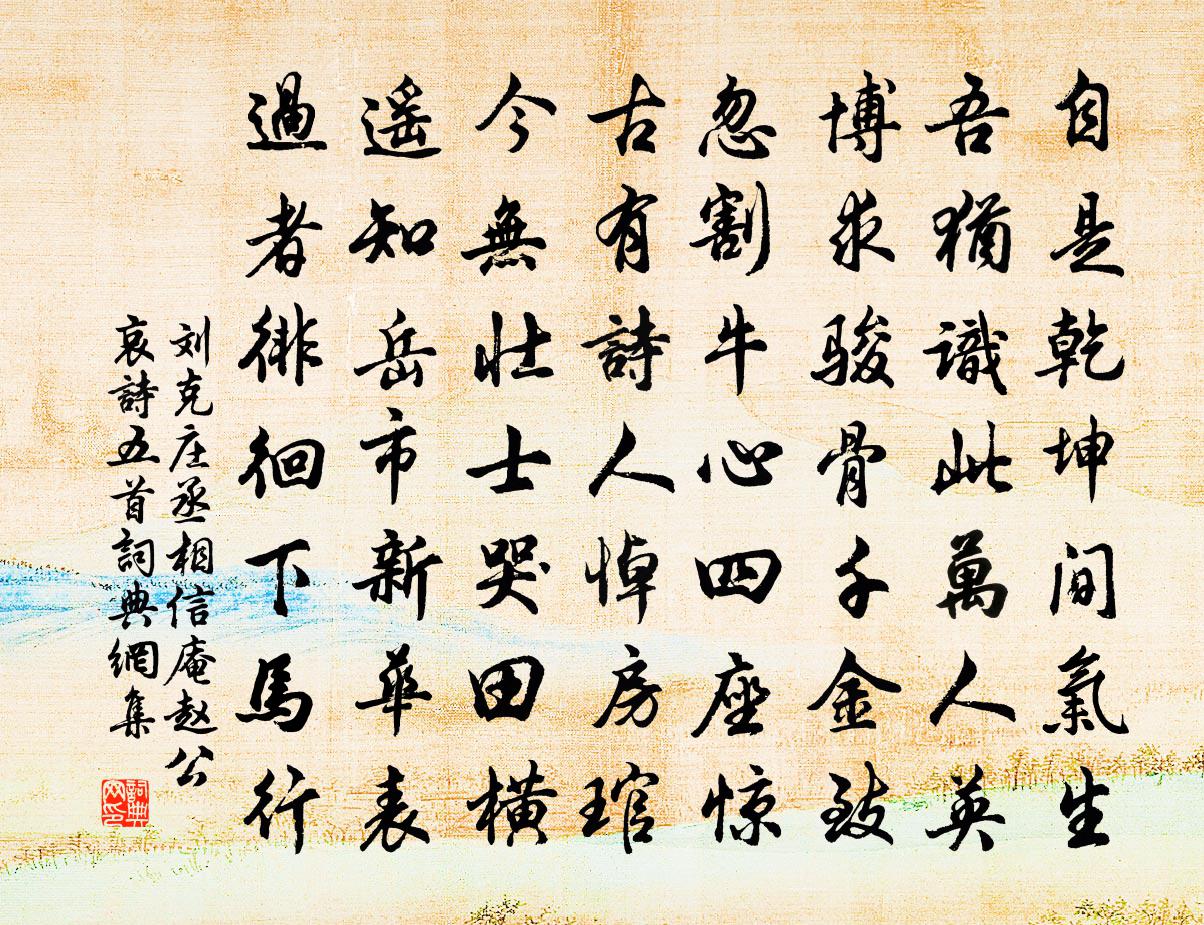 自是乾坤間氣生
吾猶識此萬人英
博求骏骨千金致
忽割牛心四座惊
古有詩人悼房琯
今無壮士哭田横
遥知岳市新華表
過者徘徊下馬行
刘克庄丞相信庵赵公
哀詩五首詞典網集
詞典
网印